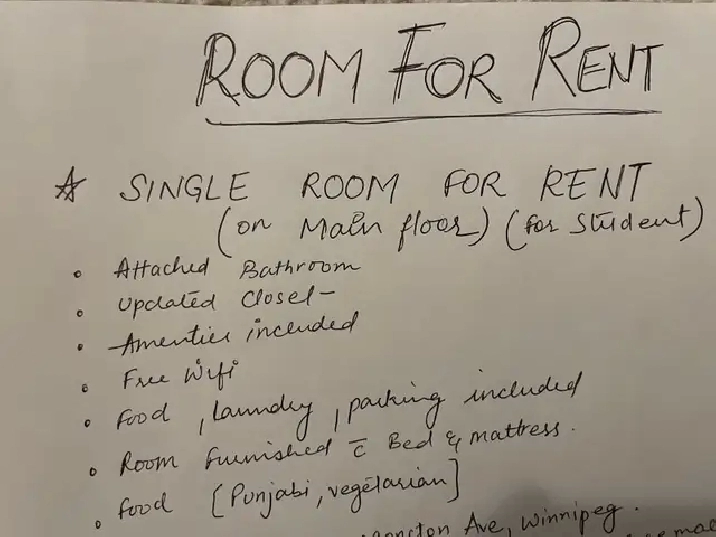 ROOM FOR RENT
☆ SINGLE ROOM FOR RENT
(on Main floor) (for Student)
• Attached Bathroom
• Updated Closet
• Amenties included
• Free Wifi
• Food, laundry, parking included
• Room furnished c̄ Bed & mattress.
• food [Punjabi, vegetarian]
Ave, Winnipeg.